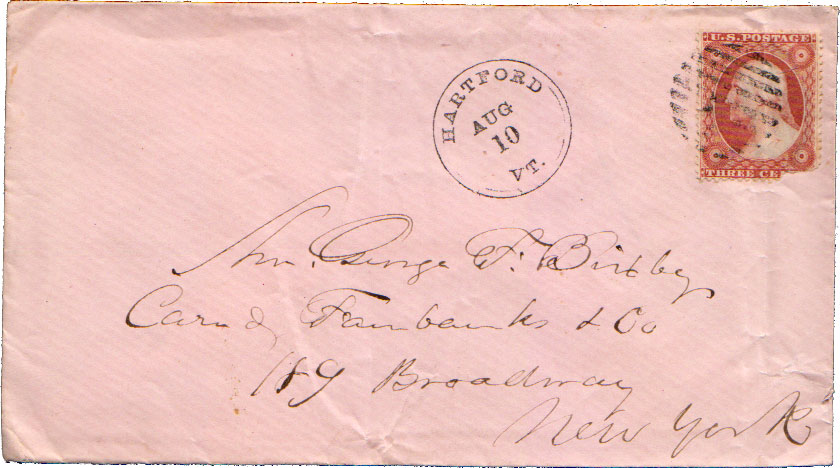 U.S. POSTAGE
THREE CE
HARTFORD
AUG
10
VT.
Mr. George F. Bixby
Care of Fairbanks & Co
189 Broadway
New York